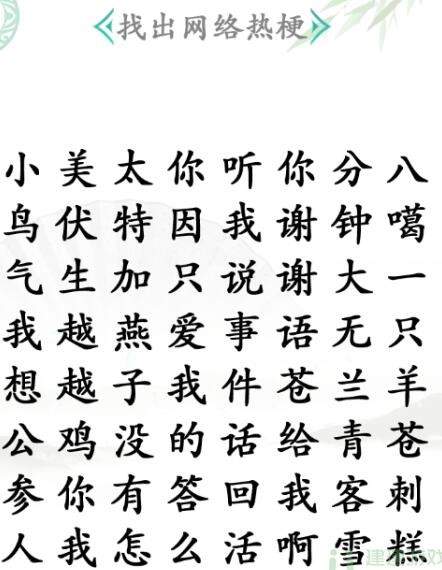 找出网络热梗
小美太你听你分八
鸟伏特因我谢钟噶
气生加只说谢大一
我越燕爱事语无只
想越子我件苍兰羊
公鸡没的话给青苍
参你有答回我客刺
人我怎么活啊雪糕